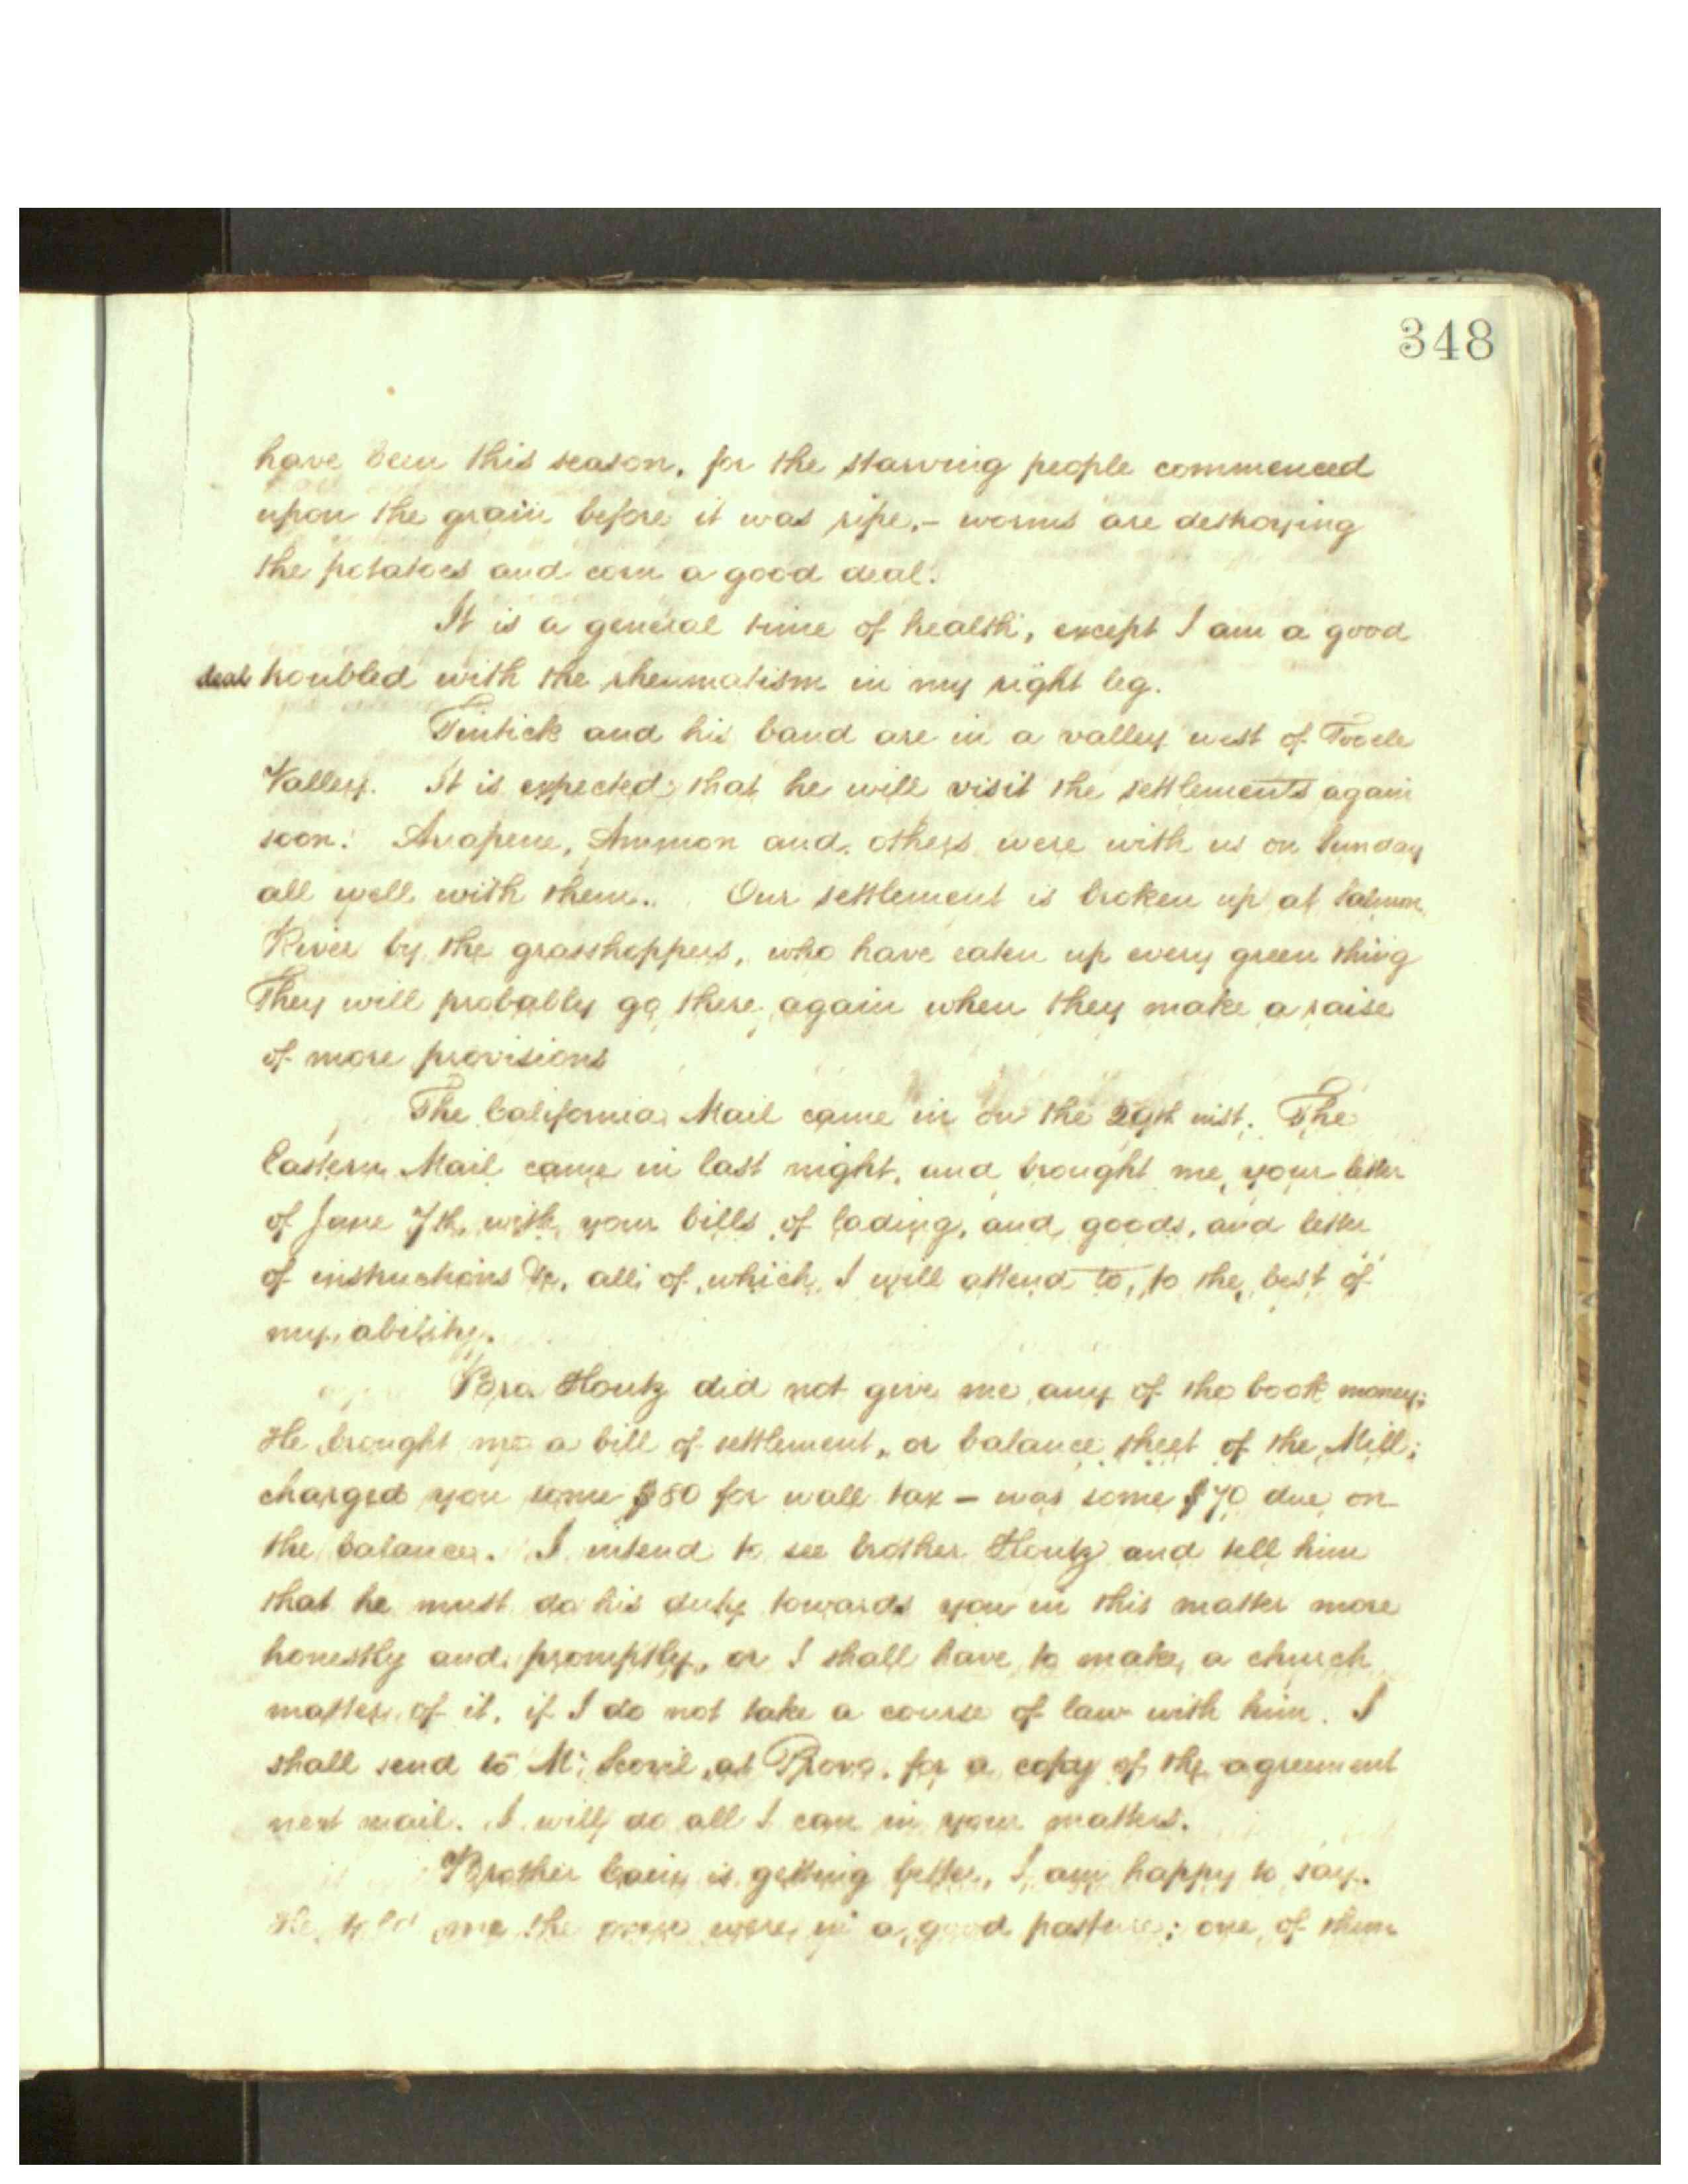 348
have been this season, for the starving people commenced
upon the grain before it was ripe, - worms are destroying
the potatoes and corn a good deal.
It is a general time of health, except I am a good
deal troubled with the rheumatism in my right leg.
Tintick and his band are in a valley west of Tooele
Valley. It is expected that he will visit the settlements again
soon. Arapene, Ammon and others were with us on Sunday
all well with them. Our settlement is broken up at Salmon
River by the grasshoppers, who have eaten up every green thing
They will probably go there again when they make a raise
of more provisions
The California Mail came in on the 29th inst. The
Eastern Mail came in last night, and brought me your letter
of June 7th, with your bills of lading, and goods, and letter
of instructions &c, all of which I will attend to, to the best of
my ability.
Bro. Houtz did not give me any of the book money;
He brought me a bill of settlement, or balance sheet of the Mill;
charged you some $80 for wall tax - was some $70 due on
the balance. I intend to see brother Houtz and tell him
that he must do his duty towards you in this matter more
honestly and promptly, or I shall have to make a church
matter of it, if I do not take a course of law with him. I
shall send to Mr Scovil, at Provo, for a copy of the agreement
next mail. I will do all I can in your matters.
Brother Cain is getting better, I am happy to say.
He told me the were in a good pasture; one of them